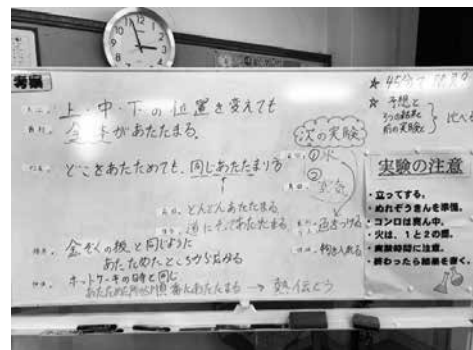 考察
上・中・下の位置を変えても
全体があたたまる。
どこをあたためても、同じあたたまり方
どんどんあたたまる
道にそってあたたまる
金ぞくの板と同じように
あたためたところから広がる
ホットケーキの時と同じ
あたためた所から順番にあたたまる → 熱伝どう
次の実験
① 水
② 空気
色をつける
★ 予想と
結果
前の実験と
比べる
実験の注意
・立ってする。
・ぬれぞうきんを準備。
・コンロは真ん中。
・火は、1と2の間。
・実験時間に注意。
・終わったら結果を書く。